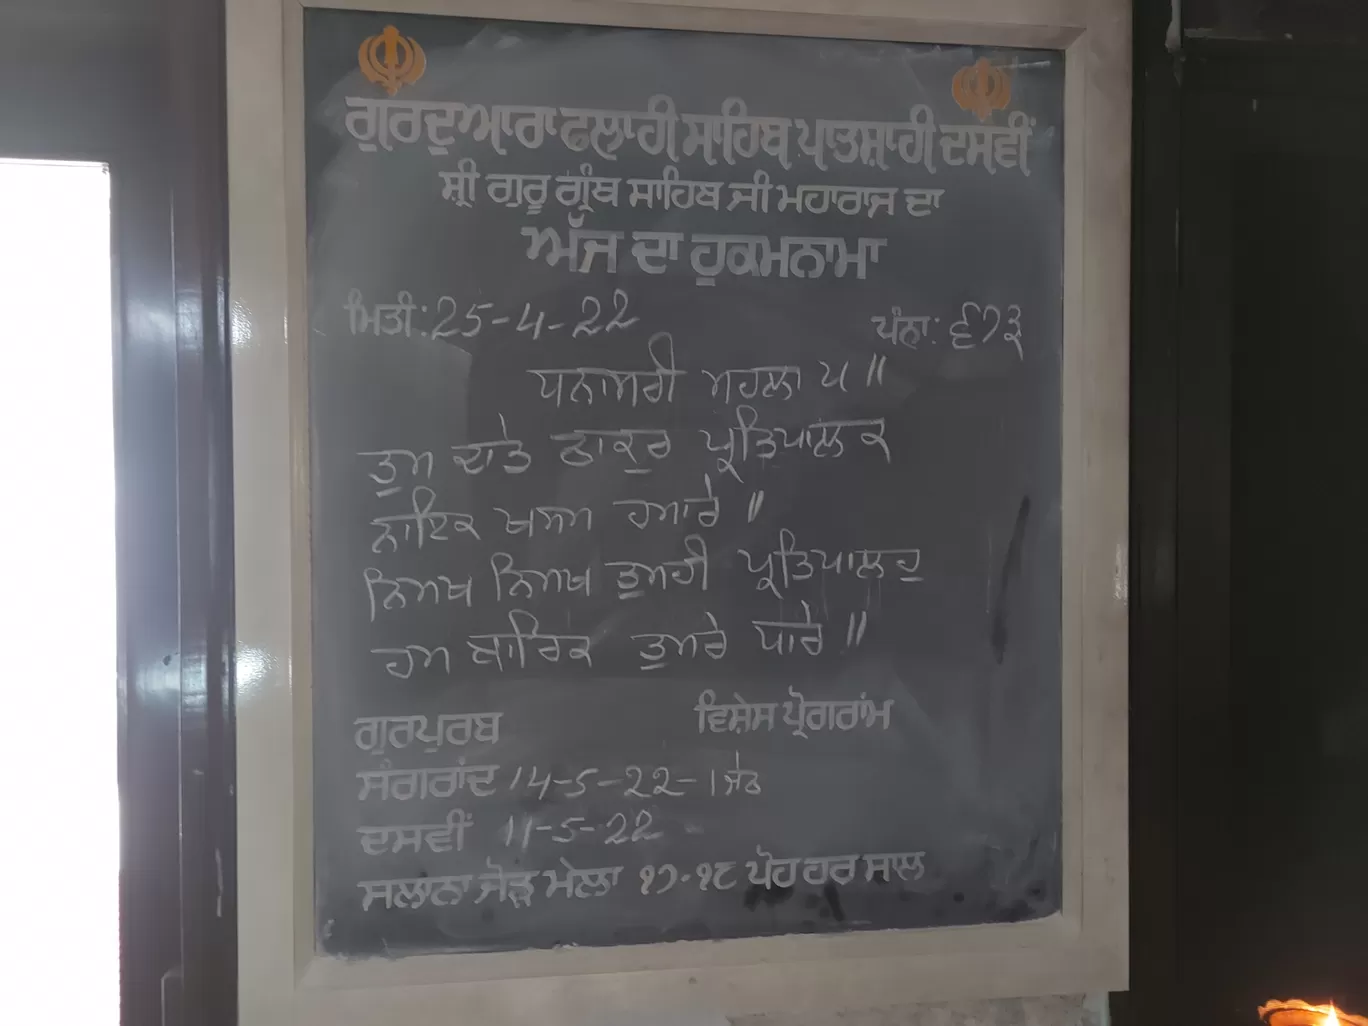 ਗੁਰਦੁਆਰਾ ਫਲਾਹੀ ਸਾਹਿਬ ਪਾਤਸ਼ਾਹੀ ਦਸਵੀਂ
ਸ਼੍ਰੀ ਗੁਰੂ ਗ੍ਰੰਥ ਸਾਹਿਬ ਜੀ ਮਹਾਰਾਜ ਦਾ
ਅੱਜ ਦਾ ਹੁਕਮਨਾਮਾ
ਮਿਤੀ: 25-4-22 ਪੰਨਾ: ੬੭੩
ਧਨਾਸਰੀ ਮਹਲਾ ੫ ॥
ਤੁਮ ਦਾਤੇ ਠਾਕੁਰ ਪ੍ਰਤਿਪਾਲਕ
ਨਾਇਕ ਖਸਮ ਹਮਾਰੇ ॥
ਨਿਮਖ ਨਿਮਖ ਤੁਮਹੀ ਪ੍ਰਤਿਪਾਲਹੁ
ਹਮ ਬਾਰਿਕ ਤੁਮਰੇ ਧਾਰੇ ॥
ਗੁਰਪੁਰਬ ਵਿਸ਼ੇਸ ਪ੍ਰੋਗਰਾਂਮ
ਸੰਗਰਾਂਦ 14-5-22-1 ਜੇਠ
ਦਸਵੀਂ 11-5-22
ਸਲਾਨਾ ਜੋੜ ਮੇਲਾ ੧੭-੧੮ ਪੋਹ ਹਰ ਸਾਲ